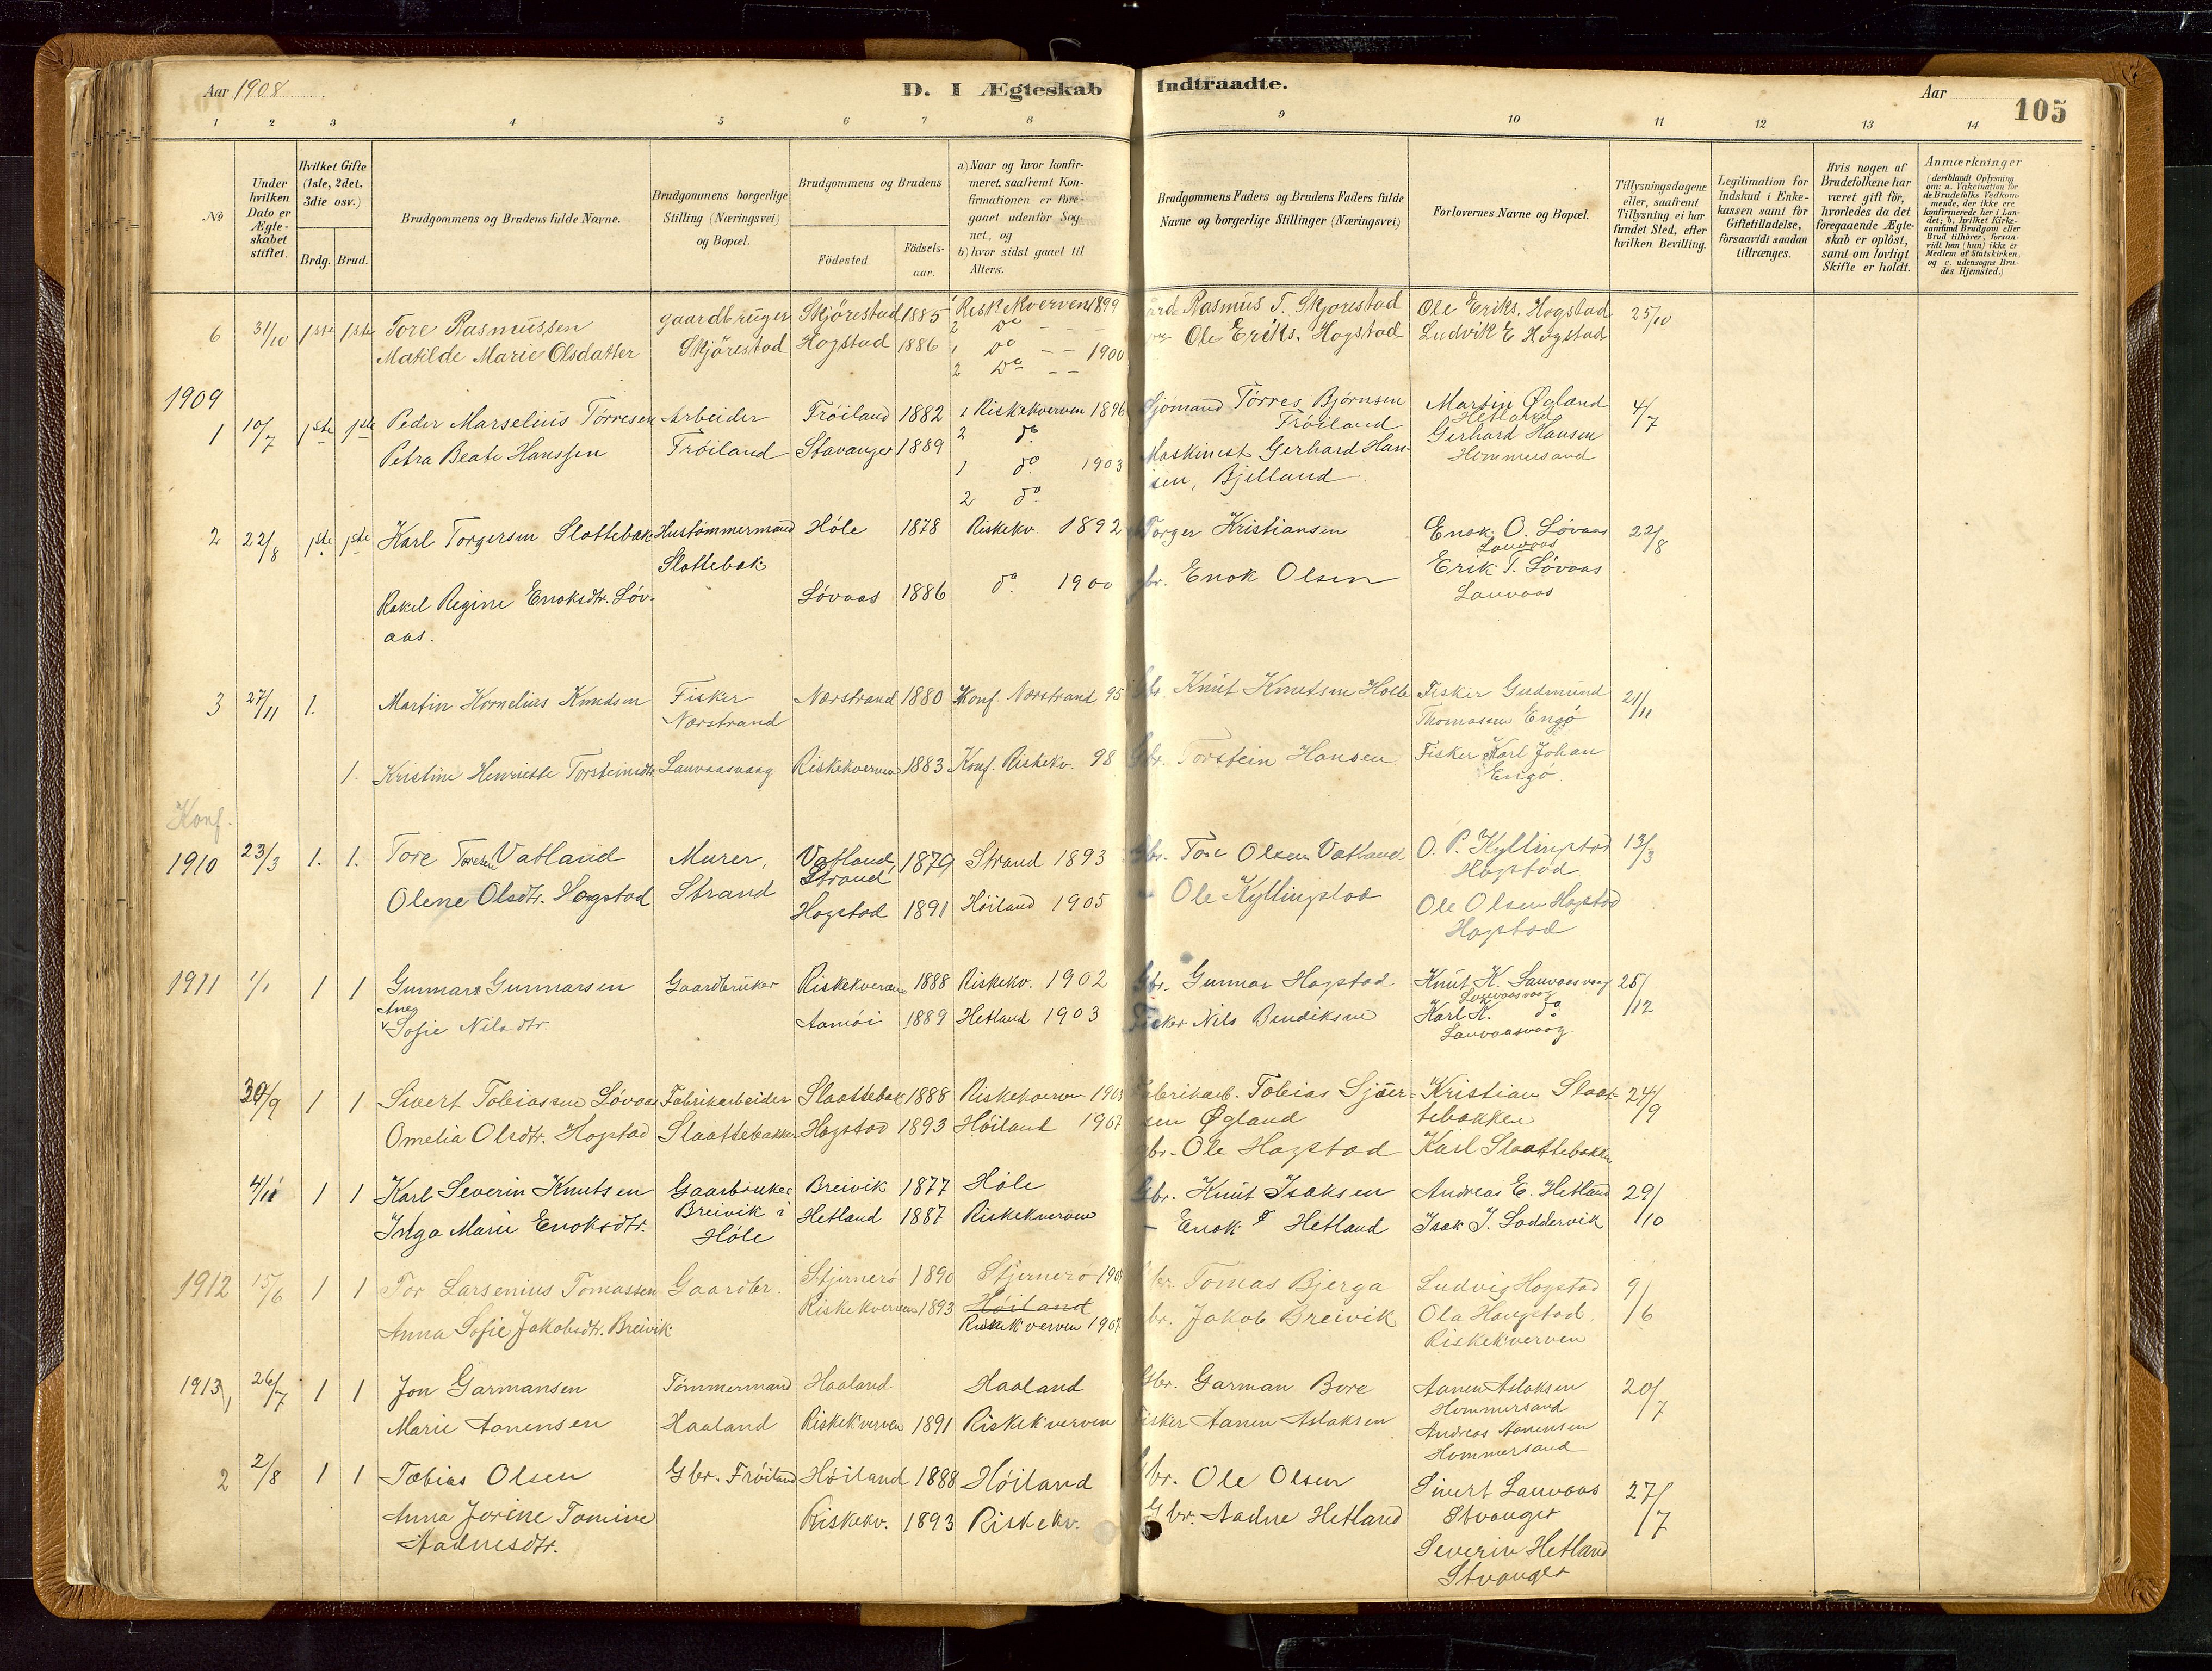 Aar 1908
D. I Ægteskab Indtraadte.
Aar
105
1 2 3 4 5 6 7 8 9 10 11 12 13 14
No
Under hvilken Dato er Ægte-skabet stiftet.
Hvilket Gifte (1ste, 2det, 3die osv.)
Brdg. Brud.
Brudgommens og Brudens fulde Navne.
Brudgommens borgerlige Stilling (Næringsvei) og Bopæl.
Brudgommens og Brudens
Födested
Födsels-aar.
a) Naar og hvor konfir-meret, saafremt Kon-firmationen er fore-gaaet udenfor Sog-net, og
b) hvor sidst gaaet til Alters.
Brudgommens Faders og Brudens Faders fulde Navne og borgerlige Stillinger (Næringsvei)
Forlovernes Navne og Bopæl.
Tillysningsdagene eller, saafremt Tillysning ei har fundet Sted, efter hvilken Bevilling.
Legitimation for Indskud i Enke-kassen samt for Giftetilladelse, forsaavidt saadan tiltrænges.
Hvis nogen af Brudefolkene har været gift för, hvorledes da det foregaaende Ægte-skab er oplöst, samt om lovligt Skifte er holdt.
Anmærkninger (deriblandt Oplysning om: a. Vakcination for de Brudefolks Vedkom-mende, der ikke ere konfirmerede her i Lan-det; b. hvilket Kirke-samfund Brudgom eller Brud tilhörer, forsaa-vidt han (hun) ikke er Medlem af Statskirken, og c. udensogns Bru-des Hjemsted.)
6 31/10 1ste 1ste Tore Rasmussen gaardbruger Skjörestad 1885 1 Riskekverven 1899 Rasmus T. Skjörestad Ole Eriks. Hogstad 25/10
2 Do
Matilde Marie Olsdatter Skjörestad Hogstad 1886 1 Do 1900 Ole Eriks. Hogstad Ludvik E Hogstad
2 Do
1909
1 10/7 1ste 1ste Peder Marselius Torresen Arbeider Fröiland 1882 1 Riskekverven 1896 Sjömand Törres Björnsen Fröiland Martin Øgland Hetland 4/7
2 do
Petra Beate Hanssen Fröiland Stavanger 1889 1 do 1903 Maskinist Gerhard Han-sen, Bjelland Gerhard Hansen Hommersand
2 do
2 22/8 1ste 1ste Karl Torgersen Slottebak Hustömmermand Höle 1878 Riskekv. 1892 Torger Kristiansen Enok O. Lövaas Lauvaas 22/8
Slottebak
Rakel Regine Enoksdtr. Löv-aas. Lövaas 1886 do 1900 gbr. Enok Olsen Erik T. Lövaas Lauvaas
3 27/11 1. Martin Kornelius Knudsen Fisker Nærstrand Nærstrand 1880 Konf. Nærstrand 95 Gbr. Knut Knutsen Fisker Gudmund Thomassen Engö 21/11
1. Kristine Henriette Torsteinsdtr. Lauvaasvaag Riskekverven 1883 Konf. Riskekv. 98 Gbr. Torstein Hansen Fisker Karl Johan Engö.
Konf.
1910 23/3 1. 1. Tore Toresen Vatland Murer, Vatland, Strand 1879 Strand 1893 Gbr. Tore Olsen Vatland O. P. Kyllingstad Hogstad 13/3
Olene Olsdtr. Hogstad Strand Hogstad 1891 Höiland 1905 Ole Kyllingstad Ole Olsen Hogstad Hogstad
1911 1/1 1 1 Gunnar Gunnarsen Gaardbruker Riskekverven 1888 Riskekv. 1902 Gbr. Gunnar Hogstad Knut K. Lauvaasvaag Lauvaasvaag 25/12
Ane Sofie Nilsdtr. Aamöi 1889 Hetland 1903 Fisker Nils Bendiksen Karl K. do Lauvaasvaag
30/9 1 1 Sivert Tobiassen Lövaas Fabrikarbeider Slaattebak 1888 Riskekverven 1903 Fabrikarb. Tobias Sjöer-sen Øgland Kristian Slaat-tebakken 24/9
Omelia Olsdtr. Hogstad Slaattebakken Hogstad 1893 Höiland 1907 gbr. Ole Hogstad Karl Slaattebakken
4/11 1 1 Karl Severin Knutsen Gaarbruker Breivik 1877 Höle Gbr. Knut Isaksen Andreas E. Hetland 29/10
Inga Marie Enoksdtr. Breivik i Höle Hetland 1887 Riskekverven – Enok Hetland Isak J. Loddervik
1912 15/6 1 1 Tor Larsenius Tomassen Gaardbr. Stjernerö 1890 Stjernerö Gbr. Tomas Bjerga Ludvig Hogstad 9/6
Anna Sofie Jakobsdtr. Breivik Riskekverven 1893 Höiland Riskekverven 1907 gbr. Jakob Breivik Ola Haugstad Riskekverven
1913 1 26/7 1 1 Jon Garmansen Tömmermand Haaland Haaland Gbr. Garman Bore Aanen Aslaksen Hommersand 20/7
Marie Aanensen Haaland Riskekverven 1891 Riskekverven Fisker Aanen Aslaksen Andreas Aanensen Hommersand
2 2/8 1 1 Tobias Olsen Gbr. Fröiland Höiland 1888 Höiland Gbr. Ole Olsen Sivert Lauvaas Stvanger 27/7
Anna Jorine Tomine Aadnesdtr. Riskekv. 1893 Riskekv. Gbr. Aadne Hetland Severin Hetland Stvanger